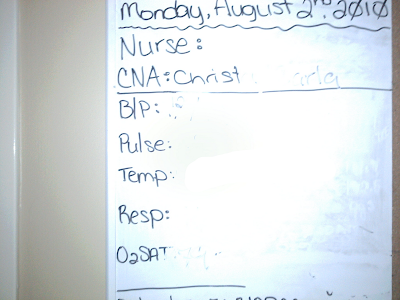 Monday, August 2nd. 2010
Nurse:
CNA: Christ
B/P:
Pulse:
Temp:
Resp:
O2SAT